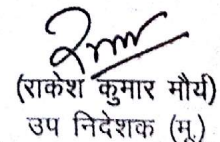 (राकेश कुमार मौर्य)
उप निदेशक (मू.)